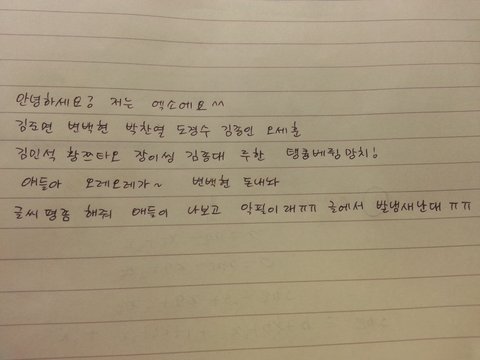 안녕하세요? 저는 엑소에요^^
김죠면 변백현 박찬열 도경수 김종인 오세훈
김민석 황쯔타오 장이씽 김종대 루한 탱쿰베륑망치!
애들아 오레오레가~ 변백현 돈내놔
글씨 평좀 해줘 애들이 나보고 악필이래ㅠㅠ 글에서 발냄새난대 ㅠㅠ